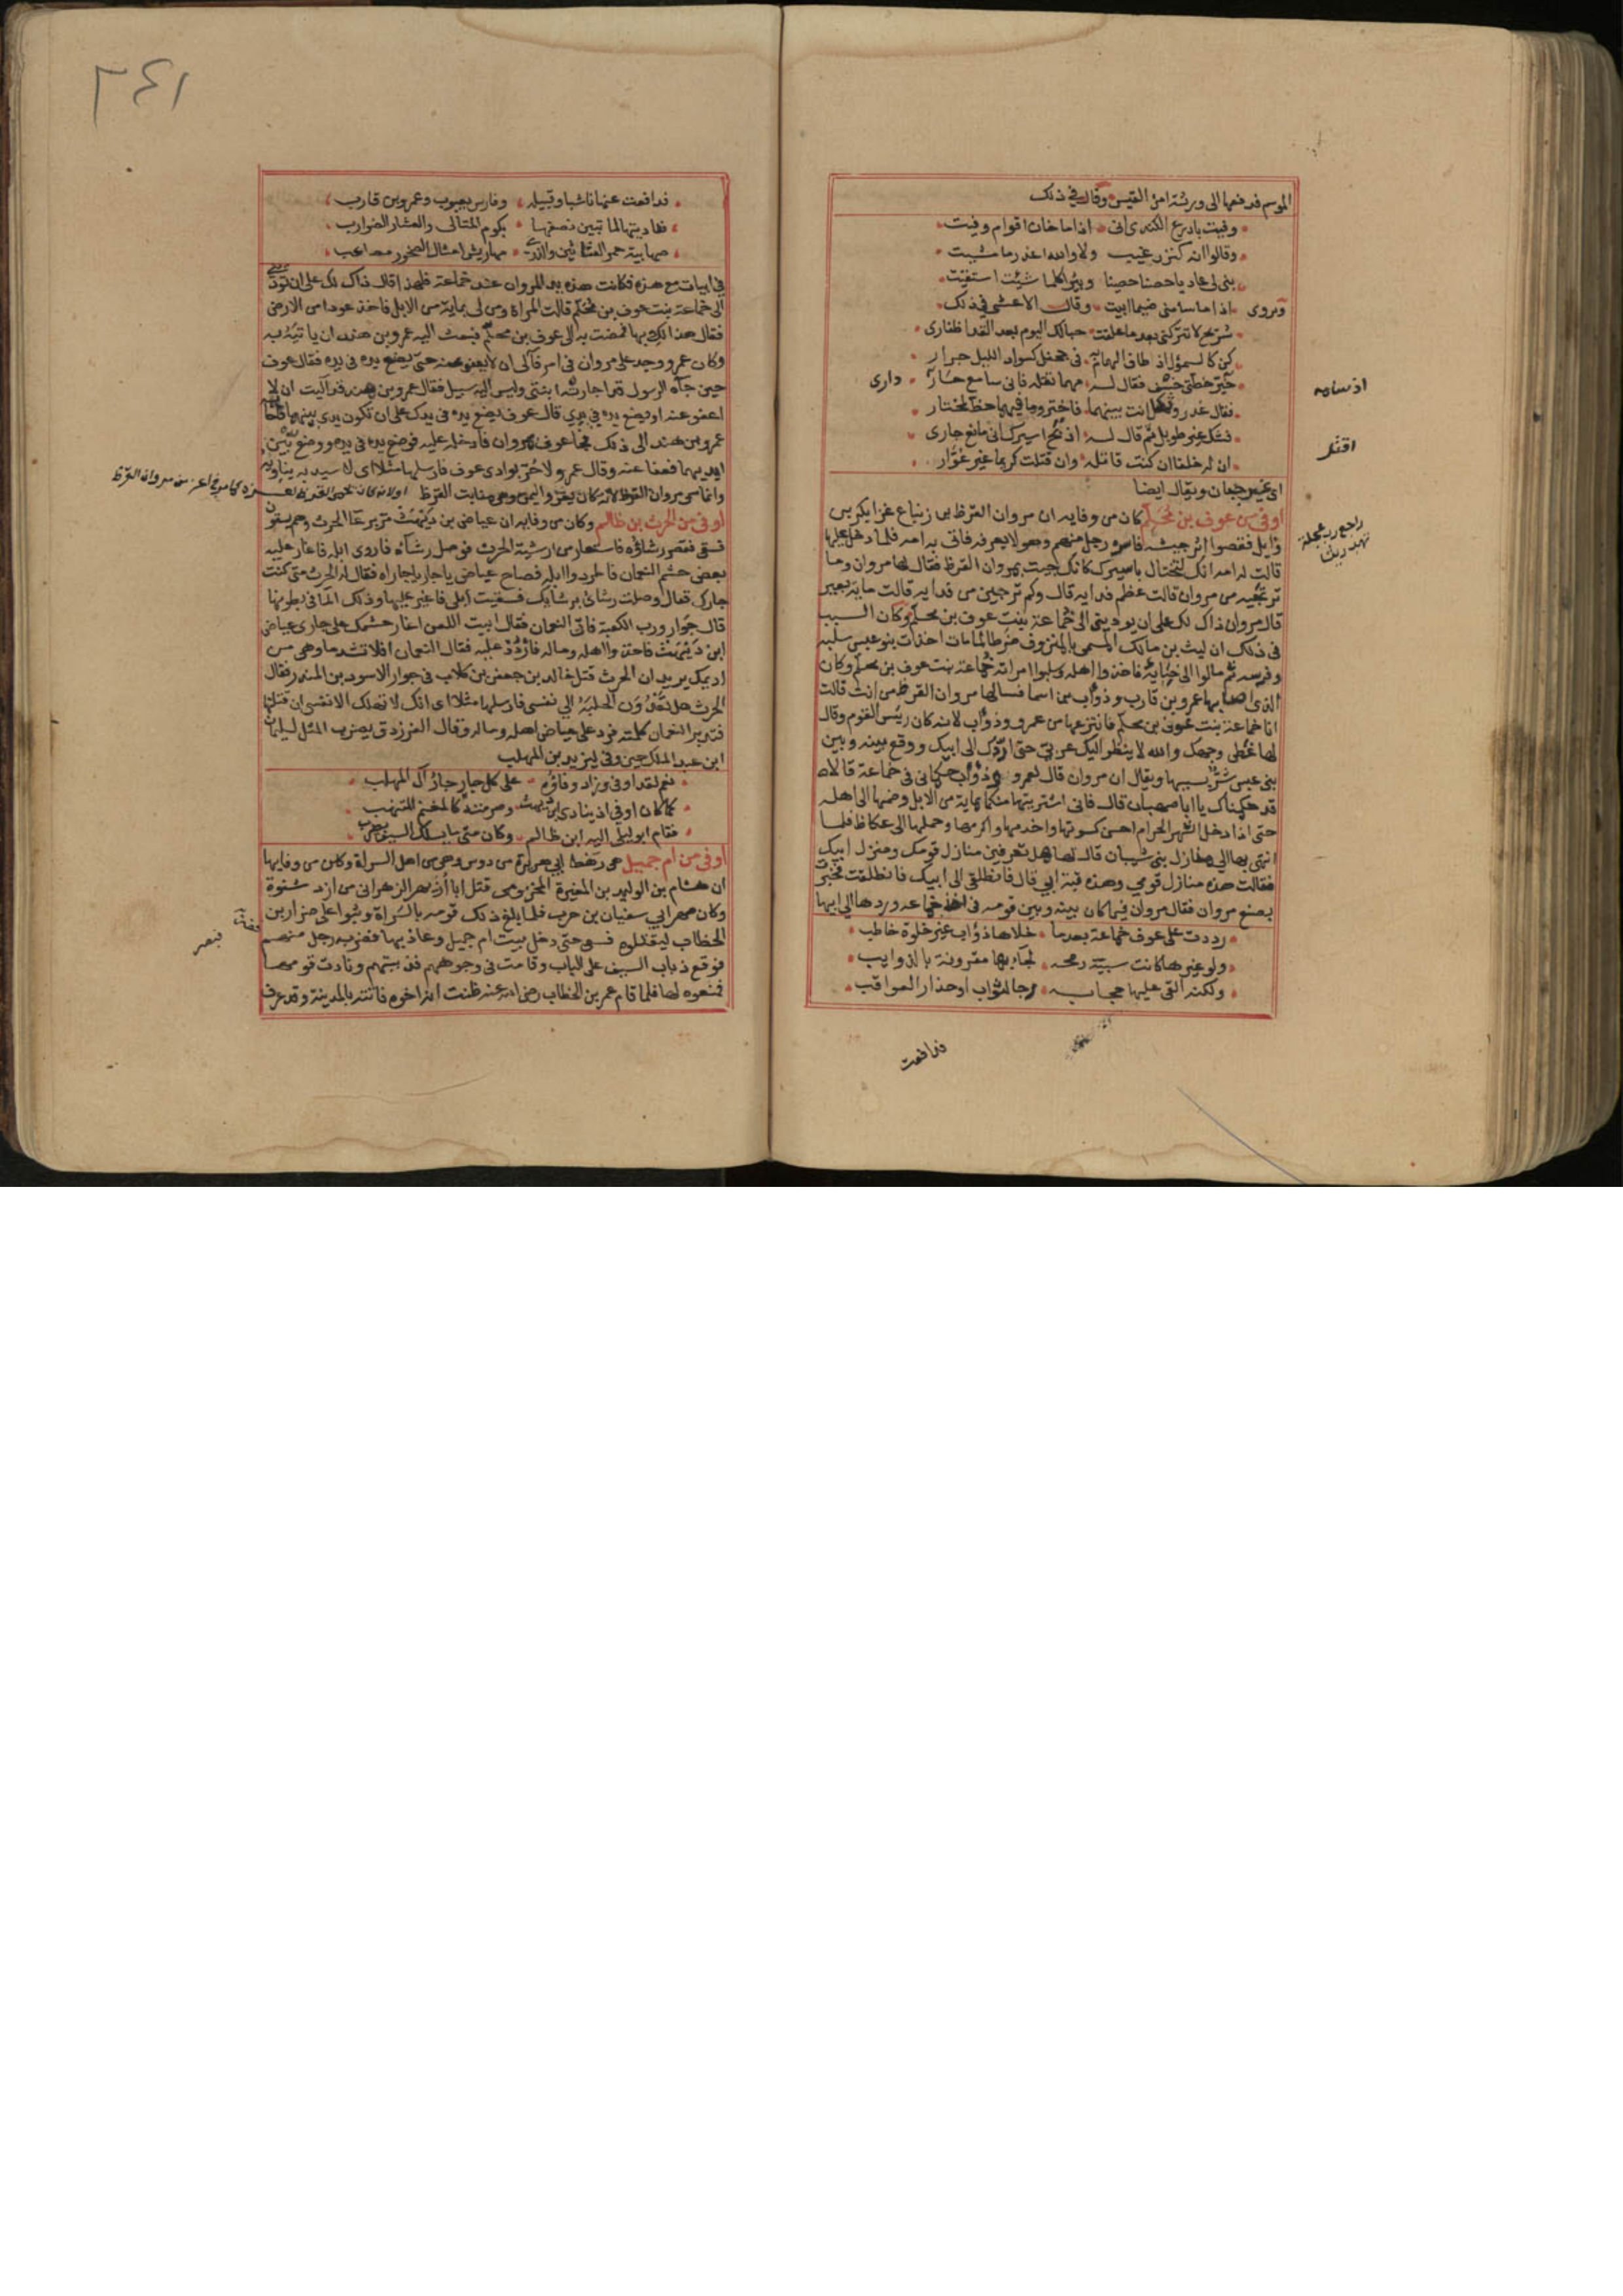 الموسم فدفعها الى ورثة امرئ القيس وقال في ذلك
وفيت بادرع الكندى انى اذا ما خان اقوام وفيت
وقالوا انه كنز رغيب ولا والله اغدر ما مشيت
بنى لى عاديا حصنا حصينا وبئرا كلما شئت استقيت
ويروى اذا ما سامنى ضيما ابيت وقال الاعشى في ذلك
شريح لا تتركنى بعد ما علقت حبالك اليوم بعد القد اظفارى
كن كالسموال اذ طاف الهمام به فى جحفل كسواد الليل جرار
خير خطتى خسف فقال له مهما تقله فانى سامع حار دارى
فقال غدر وثكل انت بينهما فاختر وما فيهما حظ لمختار
فشك غير طويل ثم قال له اذبح اسيرك انى مانع جارى
ان له خلفا ان كنت قاتله وان قتلت كريما غير غوار
اى غير جبان ويقال ايضا
اوفى من عوف بن محلم كان من وفايه ان مروان القرظ بن زنباع غزا بكر بن
وايل فقصوا اثر جيشه فاسره رجل منهم وهو لا يعرفه فاتى به امه فلما دخل عليها
قالت له امه انك لتختال باسيرك كانك جيت بمروان القرظ فقال لها مروان وما
ترتجيه من مروان قالت عظم فدايه قال وكم ترجين من فدايه قالت ماية بعير
قال مروان ذاك لك على ان يوديتى الى خماعة بنت عوف بن محلم وكان السبب
فى ذلك ان ليث بن مالك المسمى بالمنزوف ضرطا لما مات اخذت بنو عبس سلبه
وفرسه ثم مالوا الى خبايه فاخذوا اهله وسلبوا امراته خماعة بنت عوف بن محلم وكان
الذى اصابها عمرو بن قارب وذواب بن اسما فسالها مروان القرظ من انت قالت
انا خماعة بنت عوف بن محلم فانتزعها من عمرو وذواب لانه كان رئيس القوم وقال
لها غطى وجهك والله لا ينظر اليك عربى حتى اردك الى ابيك ووقع بينه وبين
بنى عبس شر بسببها ويقال ان مروان قال لعمرو وذواب حكمانى فى خماعة قالا
قد حكمناك يا ابا صهبان قال فانى اشتريتها منكما بماية من الابل وضمها الى اهله
حتى اذا دخل الشهر الحرام احسن كسوتها واخدمها واكرمها وحملها الى عكاظ فلما
انتهى بها الى منازل بنى شيبان قال لها هل تعرفين منازل قومك ومنزل ابيك
فقالت هذه منازل قومي وهذه قبة ابي قال فانطلقى الى ابيك فانطلقت فخبرت
بصنع مروان فقال مروان فيما كان بينه وبين قومه فى اخذ خماعه وردها الى ابيها
رددت على عوف خماعة بعدما خلاها ذواب غير خلوة خاطب
ولو غيرها كانت سبية رمحه لجاء بها مقرونة بالذوايب
ولكنه القى عليها حجابه رجا الثواب او حذار العواقب
فدافعت
اذ سامه
اقتل
راجع ربع مجلة
٣٤١
فدافعت عنها ناشبا وقبيله وفارس يعبوب وعمرو بن قارب
ففاديتها لما تبين نصفها بكوم المتالى والعشار الضوارب
صهابية حمر العثانين والذرى مهاريش امثال الصخور مصاعب
في ابيات مع هذه فكانت هذه يد المروان عند خماعة فلهذا قال ذاك لك على ان تودى
الى خماعة بنت عوف بن محلم قالت المراة ومن لى بماية من الابل فاخذ عودا من الارض
فقال هذا لك بها فمضت به الى عوف بن محلم فبعث اليه عمرو بن هند ان ياتيه به
وكان عمرو وجد على مروان فى امر فالى ان لا يعفو عنه حتى يضع يده فى يده فقال عوف
حين جاه الرسول قد اجارته ابنتى وليس اليه سبيل فقال عمرو بن هند قد آليت ان لا
اعفو عنه او يضع يده فى يدي قال عوف يضع يده فى يدك على ان تكون يدى بينهما فاجابه
عمرو بن هند الى ذلك فجا عوف بمروان فادخله عليه فوضع يده فى يده ووضع يده بين
ايديهما فعفا عنه وقال عمرو لا حر بوادى عوف فارسلها مثلا اى لا سيد به يناويه
وانما سمى مروان القرظ لانه كان يغزو اليمن وهى منابت القرظ او لانه كان يحمى القرظ لعزه كما مر فى اعز من مروان القرظ
اوفى من الحرث بن ظالم وكان من وفايه ان عياض بن ديهث مر برعا الحرث وهم يسقون
فسقى فقصر رشاؤه فاستعار من ارشية الحرث فوصل رشاه فاروى ابله فاغار عليه
بعض حشم النعمان فاطردوا ابله فصاح عياض يا جار يا جاراه فقال له الحرث متى كنت
جارك فقال وصلت رشائى برشايك فسقيت ابلى فاغير عليها وذلك الما فى بطونها
قال جوار ورب الكعبة فاتى النعمان فقال ابيت اللعن اغار حشمك على جارى عياض
ابن ديهث فاخذوا اهله وماله فاردد عليه فقال النعمان افلا تشد ما وهى من
اديمك يريد ان الحرث قتل خالد بن جعفر بن كلاب فى جوار الاسود بن المنذر فقال
الحرث هل تعدون الحلبة الى نفسى فارسلها مثلا اى انك لا تهلك الا نفسى ان قتلتها
فتدبر النعمان كلمته فرد على عياض اهله وماله وقال الفرزدق يضرب المثل لسليمان
ابن عبد الملك حين وفى ليزيد بن المهلب
لعمرى لقد اوفى وزاد وفاؤه على كل جار جار آل المهلب
كما كان اوفى اذ ينادى ابن ديهث وصرمته كالمغنم المتنهب
فقام ابو ليلى اليه ابن ظالم وكان متى ما يسلل السيف يضرب
اوفى من ام جميل هى رهط ابي هريرة من دوس وهى من اهل السراة وكان من وفايها
ان هشام بن الوليد بن المغيرة المخزومى قتل ابا ازيهر الزهرانى من ازد شنوة
وكان صهر ابي سفيان بن حرب فلما بلغ ذلك قومه بالسراة وثبوا على ضرار بن
الخطاب ليقتلوه فسعى حتى دخل بيت ام جميل وعاذ بها فضربه رجل منهم
فوقع ذباب السيف على الباب وقامت فى وجوههم فذبتهم ونادت قومها
فمنعوه لها فلما قام عمر بن الخطاب رضى الله عنه ظنت انه اخوه فاتته بالمدينة وقد عرف